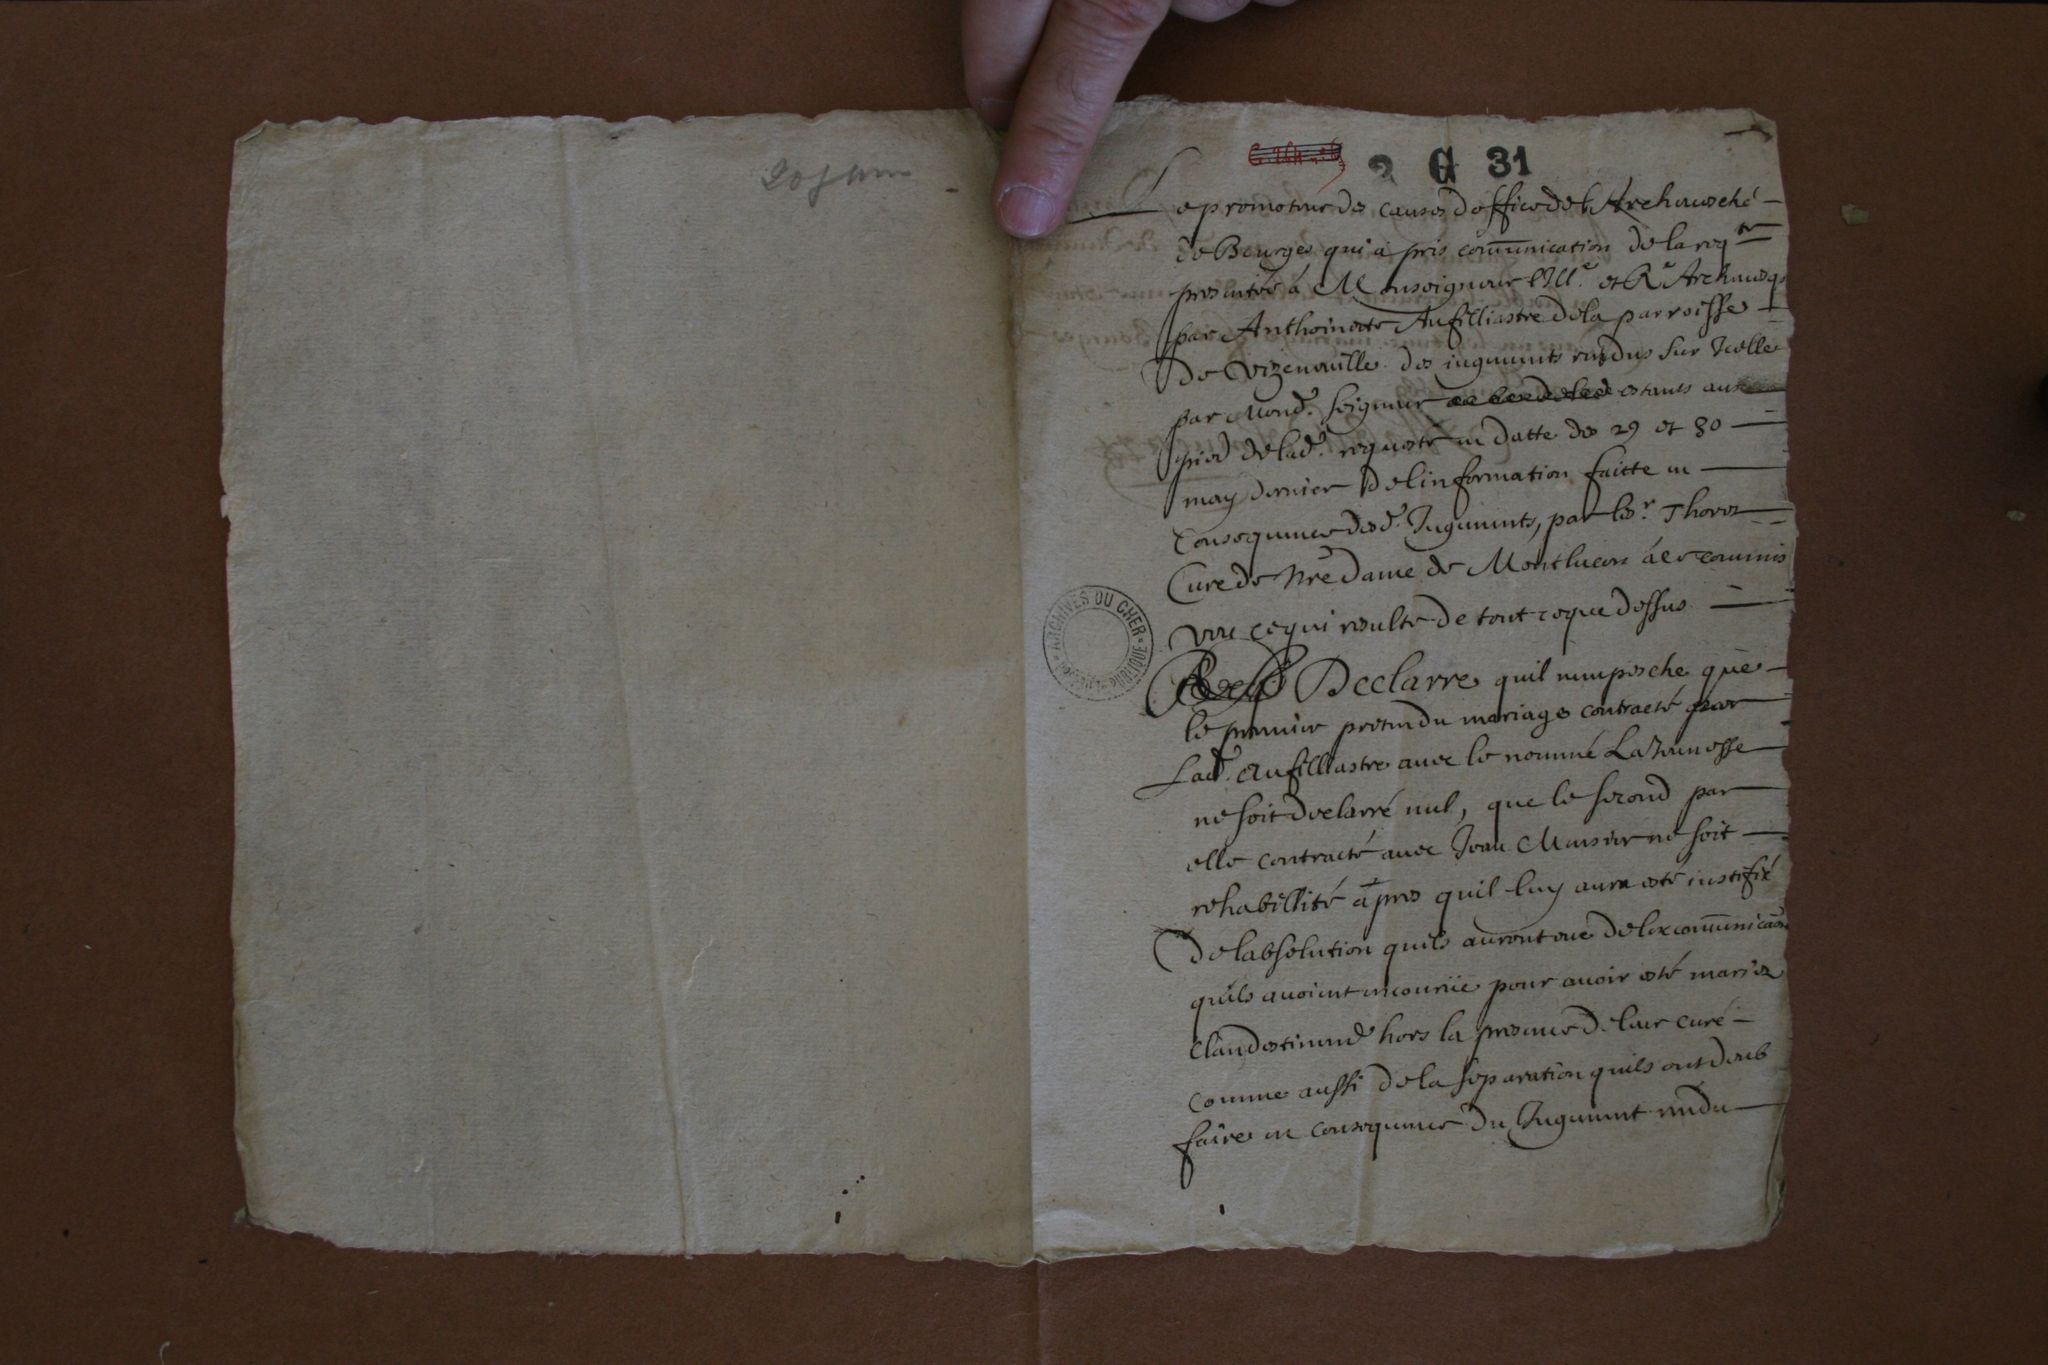 2 G 31
Le promoteur des causes doffice de lArchevesché
de Bourges qui a pris communication de la reqte
presentée á Monseigneur lIlle. et Re Archevesq
par Anthoinette Aufilliastre de la parroisse
de Vizenouille des iugements rendus sur Icelle
par Mond. seigneur estants aux
pied de lad. requeste en datte des 29 et 30
may dernier de linformation faitte en
Consequence desd. Iugements, par le sr. Thorez
Curé de Nre Dame de Montlucon á ce commis
veu ce qui resulte de tout ce que dessus
Declarre quil nempesche que
le premier pretendu mariage contracté par
Lad. Aufilliastre avec le nommé La Jeunesse
ne soit declarré nul, que le second par
elle contracté avec Jean Mersier ne soit
rehabillité apres quil luy aura esté iustifié
de labsolution quils auront eue de lexcommunicaon
quils avoient encouruë pour avoir esté mariez
Clandestinemt hors la presence de leur curé
comme aussi de la separation quils ont deub
faire en consequence du Iugement rendu
ARCHIVES DU CHER